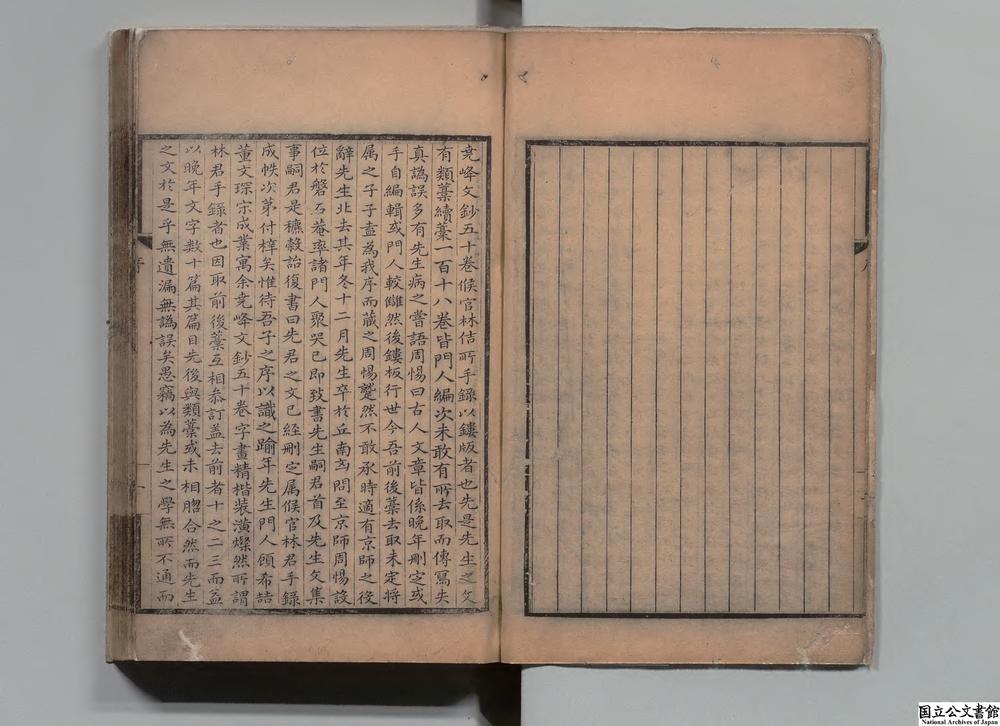 堯峰文鈔五十卷候官林佶所手録以鏤版者也先是先生之文
有類藁續藁一百十八卷皆門人編次未敢有所去取而傳寫失
真譌誤多有先生病之嘗語周惕曰古人文章皆係晚年刪定或
手自編輯或門人較讎然後鏤板行世今吾前後藁去取未定將
属之子子盍為我序而蔵之周惕蹵然不敢承時適有京師之役
辭先生北去其年冬十二月先生卒於丘南訃問至京師周惕設
位於磐石菴率諸門人聚哭已即致書先生嗣君首及先生文集
事嗣君是穮穀詒復書曰先君之文已經刪定属候官林君手錄
成帙次第付梓矣惟待吾子之序以識之踰年先生門人顧希喆
董文琛宗成業寓余堯峰文鈔五十卷字畫精楷装潢燦然所謂
林君手録者也因取前後藁互相叅訂盖去前者十之二三而益
以晚年文字数十篇其篇目先後與類藁或未相脗合然而先生
之文於是乎無遺漏無譌誤矣愚竊以為先生之學無所不通而
序
一
国立公文書館
National Archives of Japan